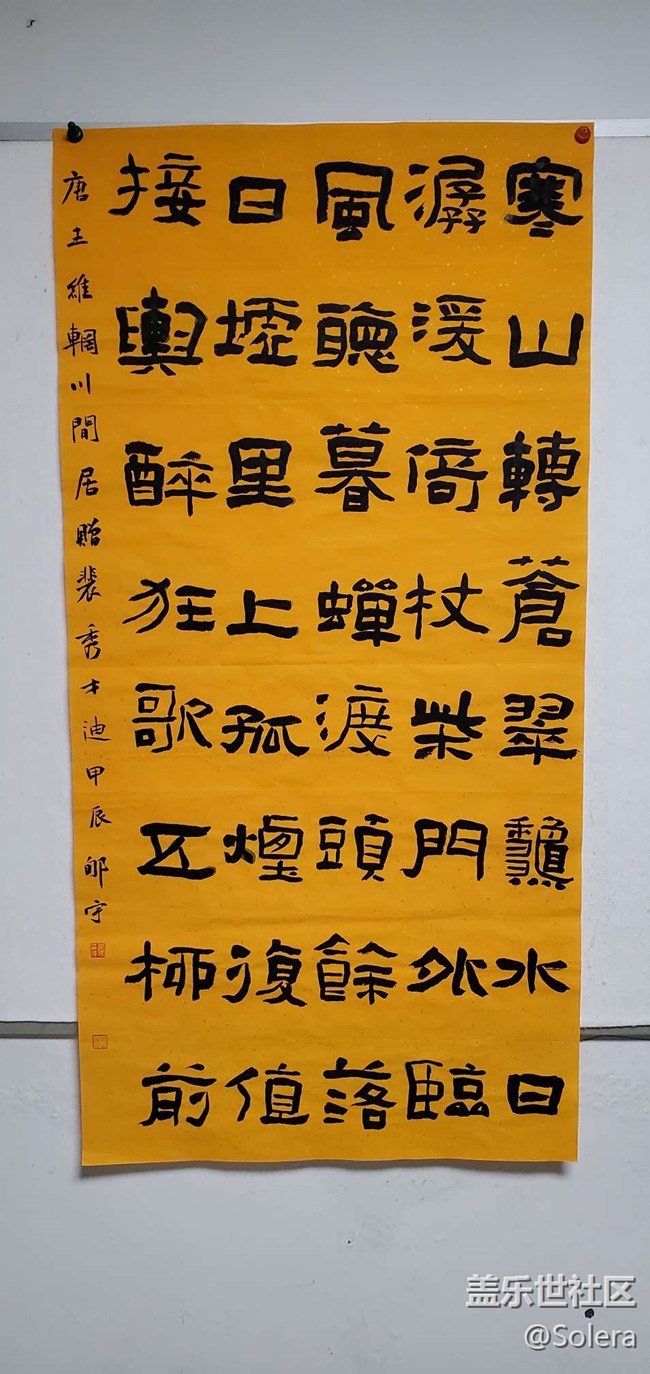 寒山轉蒼翠龝水日
潺湲倚杖柴門外臨
風聽暮蟬渡頭餘落
日墟里上孤煙復值
接輿醉狂歌五柳前
唐王維輞川間居贈裴秀才迪甲辰
盖乐世社区
@Solera